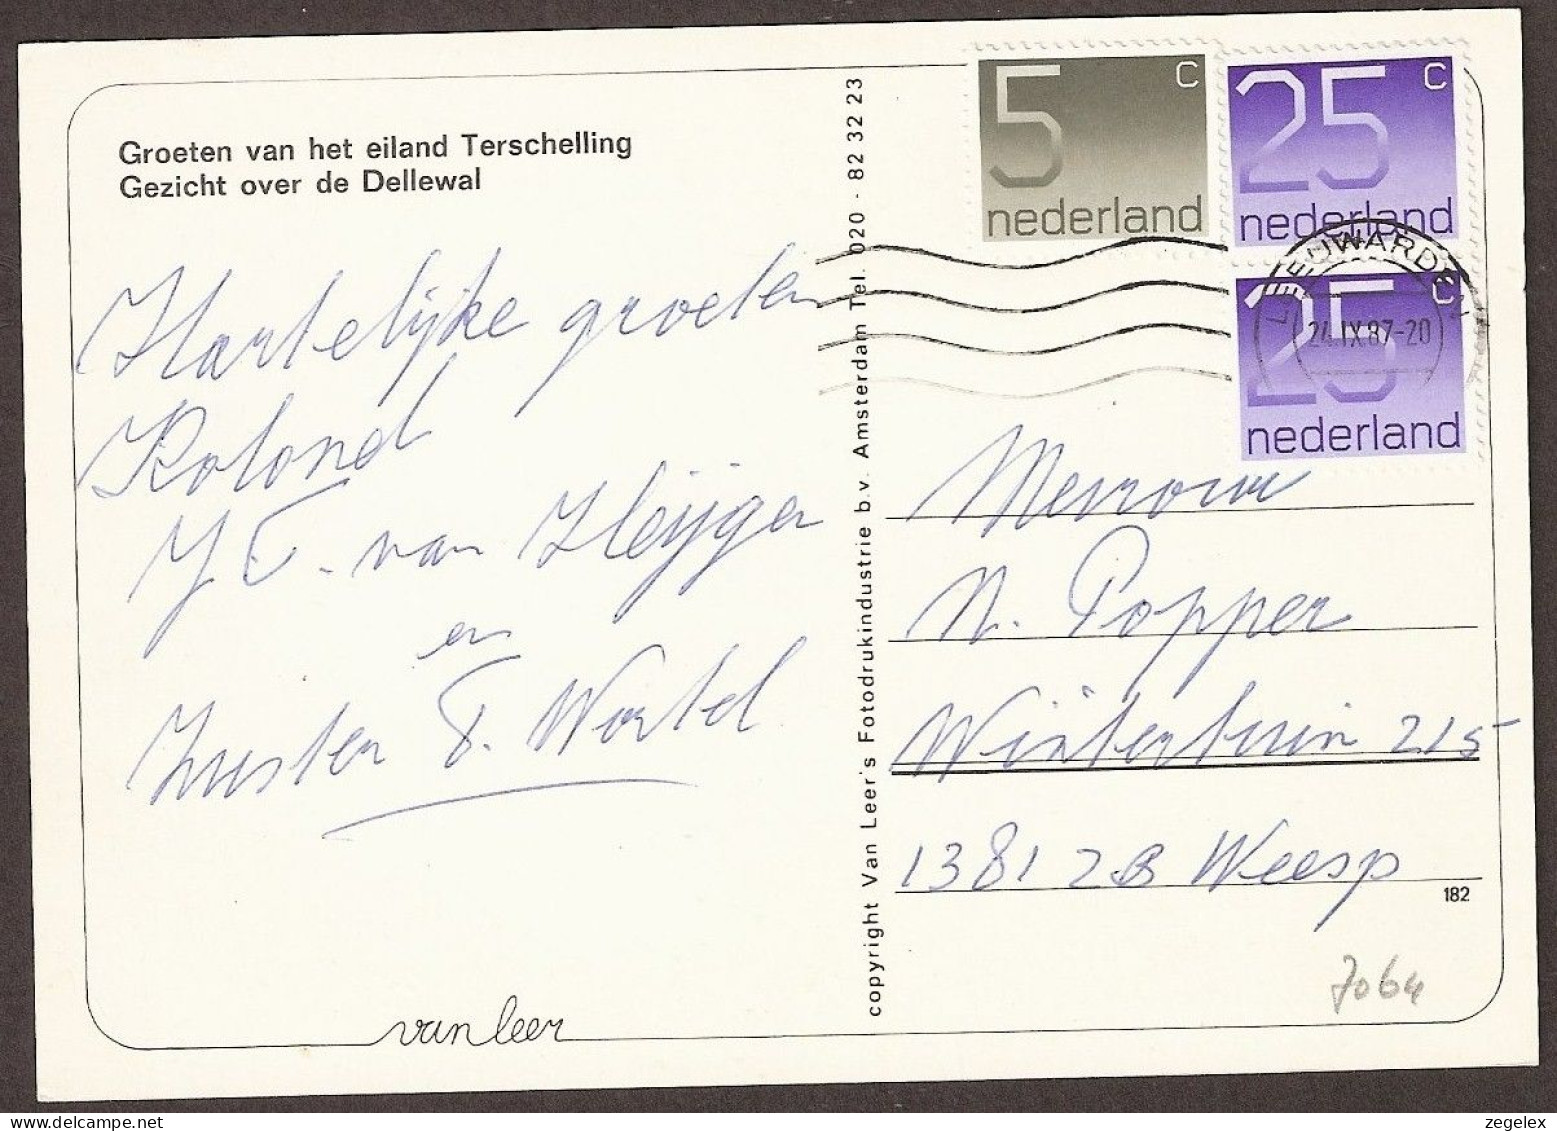 Groeten van het eiland Terschelling
Gezicht over de Dellewal
Hartelijke groeten
Roland
J C. van Heijgen
en
Zuster T. Wortel
van leer
copyright Van Leer's Fotodrukindustrie b.v. Amsterdam Tel. 020 - 82 32 23
5 c
nederland
25 c
nederland
25 c
nederland
LEEUWARDEN
24.IX.87-20
Mevrouw
N. Popper
Wintertuin 215
1381 ZB Weesp
182
7064
zegelex